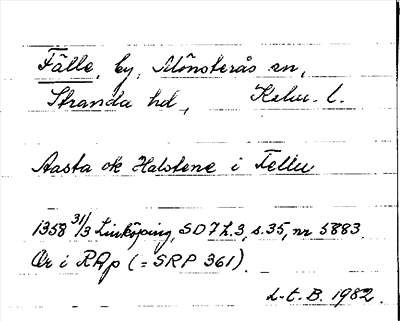 Fälle, by, Mönsterås sn,
Stranda hd, Kalm. l.
Aasta ok Halstene i Fellu
1358 31/3 Linköping, SD 7 h. 3, s. 35, nr 5883.
Or i RAp (= SRP 361).
L-E. B. 1982.